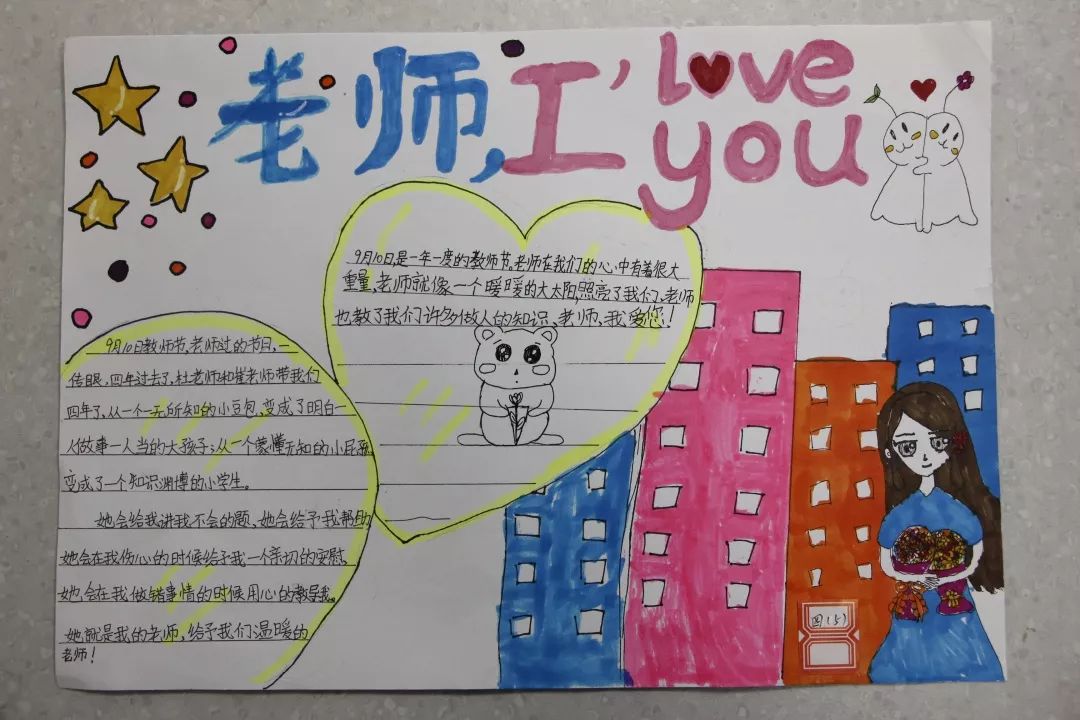 老师,I'love
you
9月10日,是一年一度的教师节,老师在我们的心中有着很大
重量,老师就像一个暖暖的大太阳照亮了我们,老师
也教了我们许多做人的知识,老师,我爱您!
9月10日教师节,老师过的节日,一
传眼,四年过去了,杜老师和崔老师带我们
四年了,从一个一无所知的小豆包,变成了明白一
人做事一人当的大孩子;从一个蒙懂无知的小屁孩
变成了一个知识渊博的小学生。
她会给我讲我不会的题,她会给予我帮助
她会在我伤心的时候给予我一个亲切的安慰,
她,会在我做错事情的时候用心的教导我。
她,就是我的老师,给予我们温暖的
老师!
四(5)